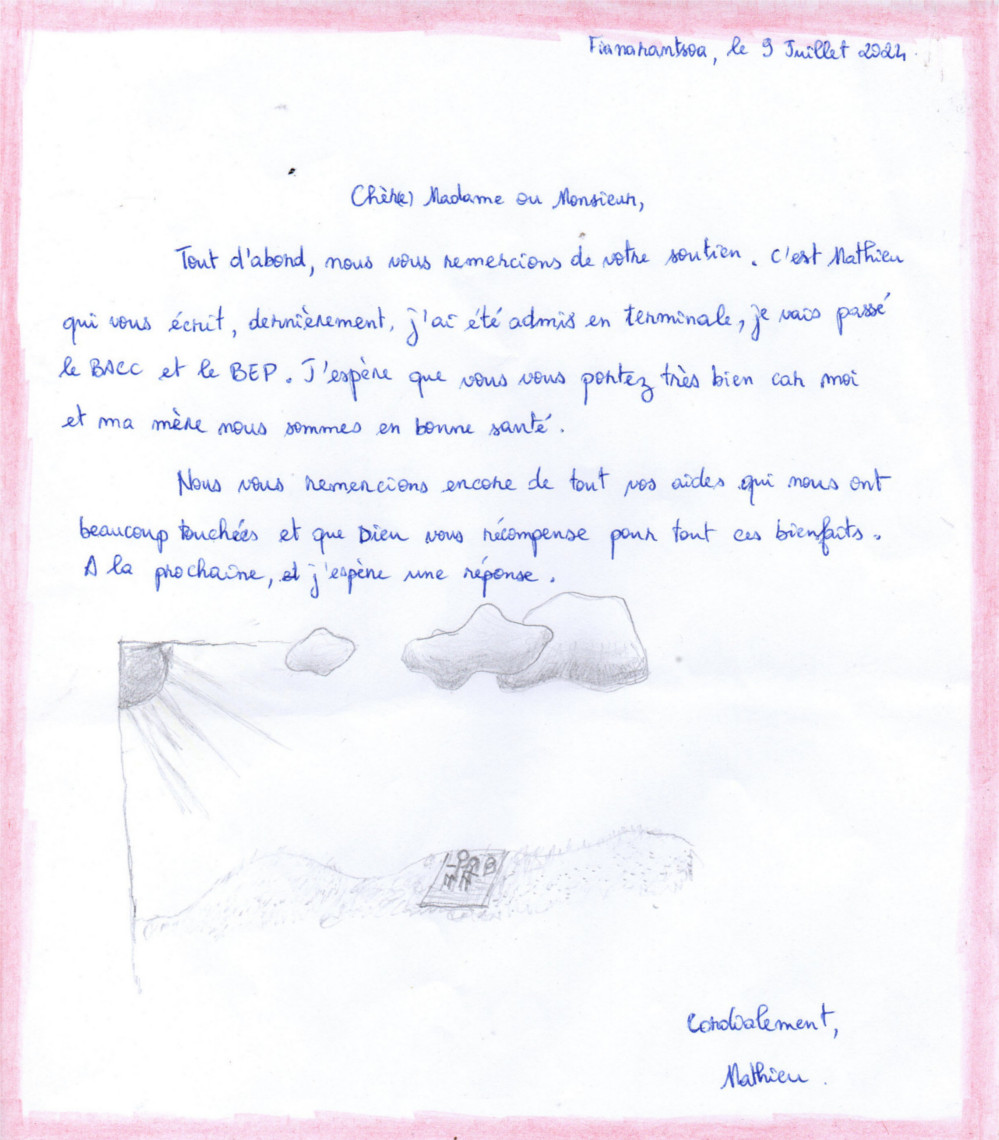 Fianarantsoa, le 9 Juillet 2024
Chèr(e) Madame ou Monsieur,
Tout d'abord, nous vous remercions de votre soutien. C'est Mathieu
qui vous écrit, dernièrement, j'ai été admis en terminale, je vais passé
le BACC et le BEP. J'espère que vous vous portez très bien car moi
et ma mère nous sommes en bonne santé.
Nous vous remercions encore de tout vos aides qui nous ont
beaucoup touchées et que Dieu vous récompense pour tout ces bienfaits.
A la prochaine, et j'espère une réponse.
Cordialement,
Mathieu.